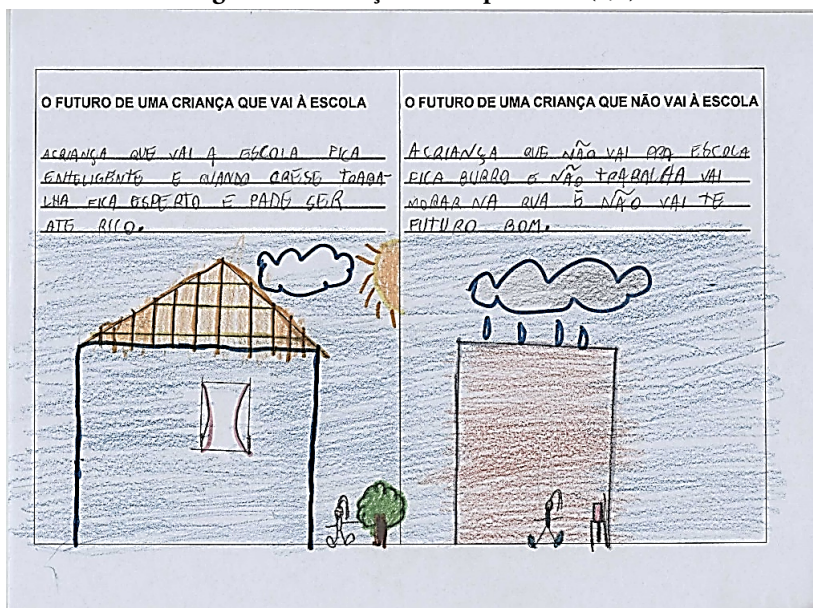 O FUTURO DE UMA CRIANÇA QUE VAI À ESCOLA
ACRIANÇA QUE VAI A ESCOLA FICA
ENTELIGENTE E QUANDO CRESE TRABA-
LHA FICA ESPERTO E PADE SER
ATE RICO.
O FUTURO DE UMA CRIANÇA QUE NÃO VAI À ESCOLA
ACRIANÇA QUE NÃO VAI PRA ESCOLA
FICA BURRO E NÃO TRABALHA VAI
MORAR NA RUA E NÃO VAI TE
FUTURO BOM.